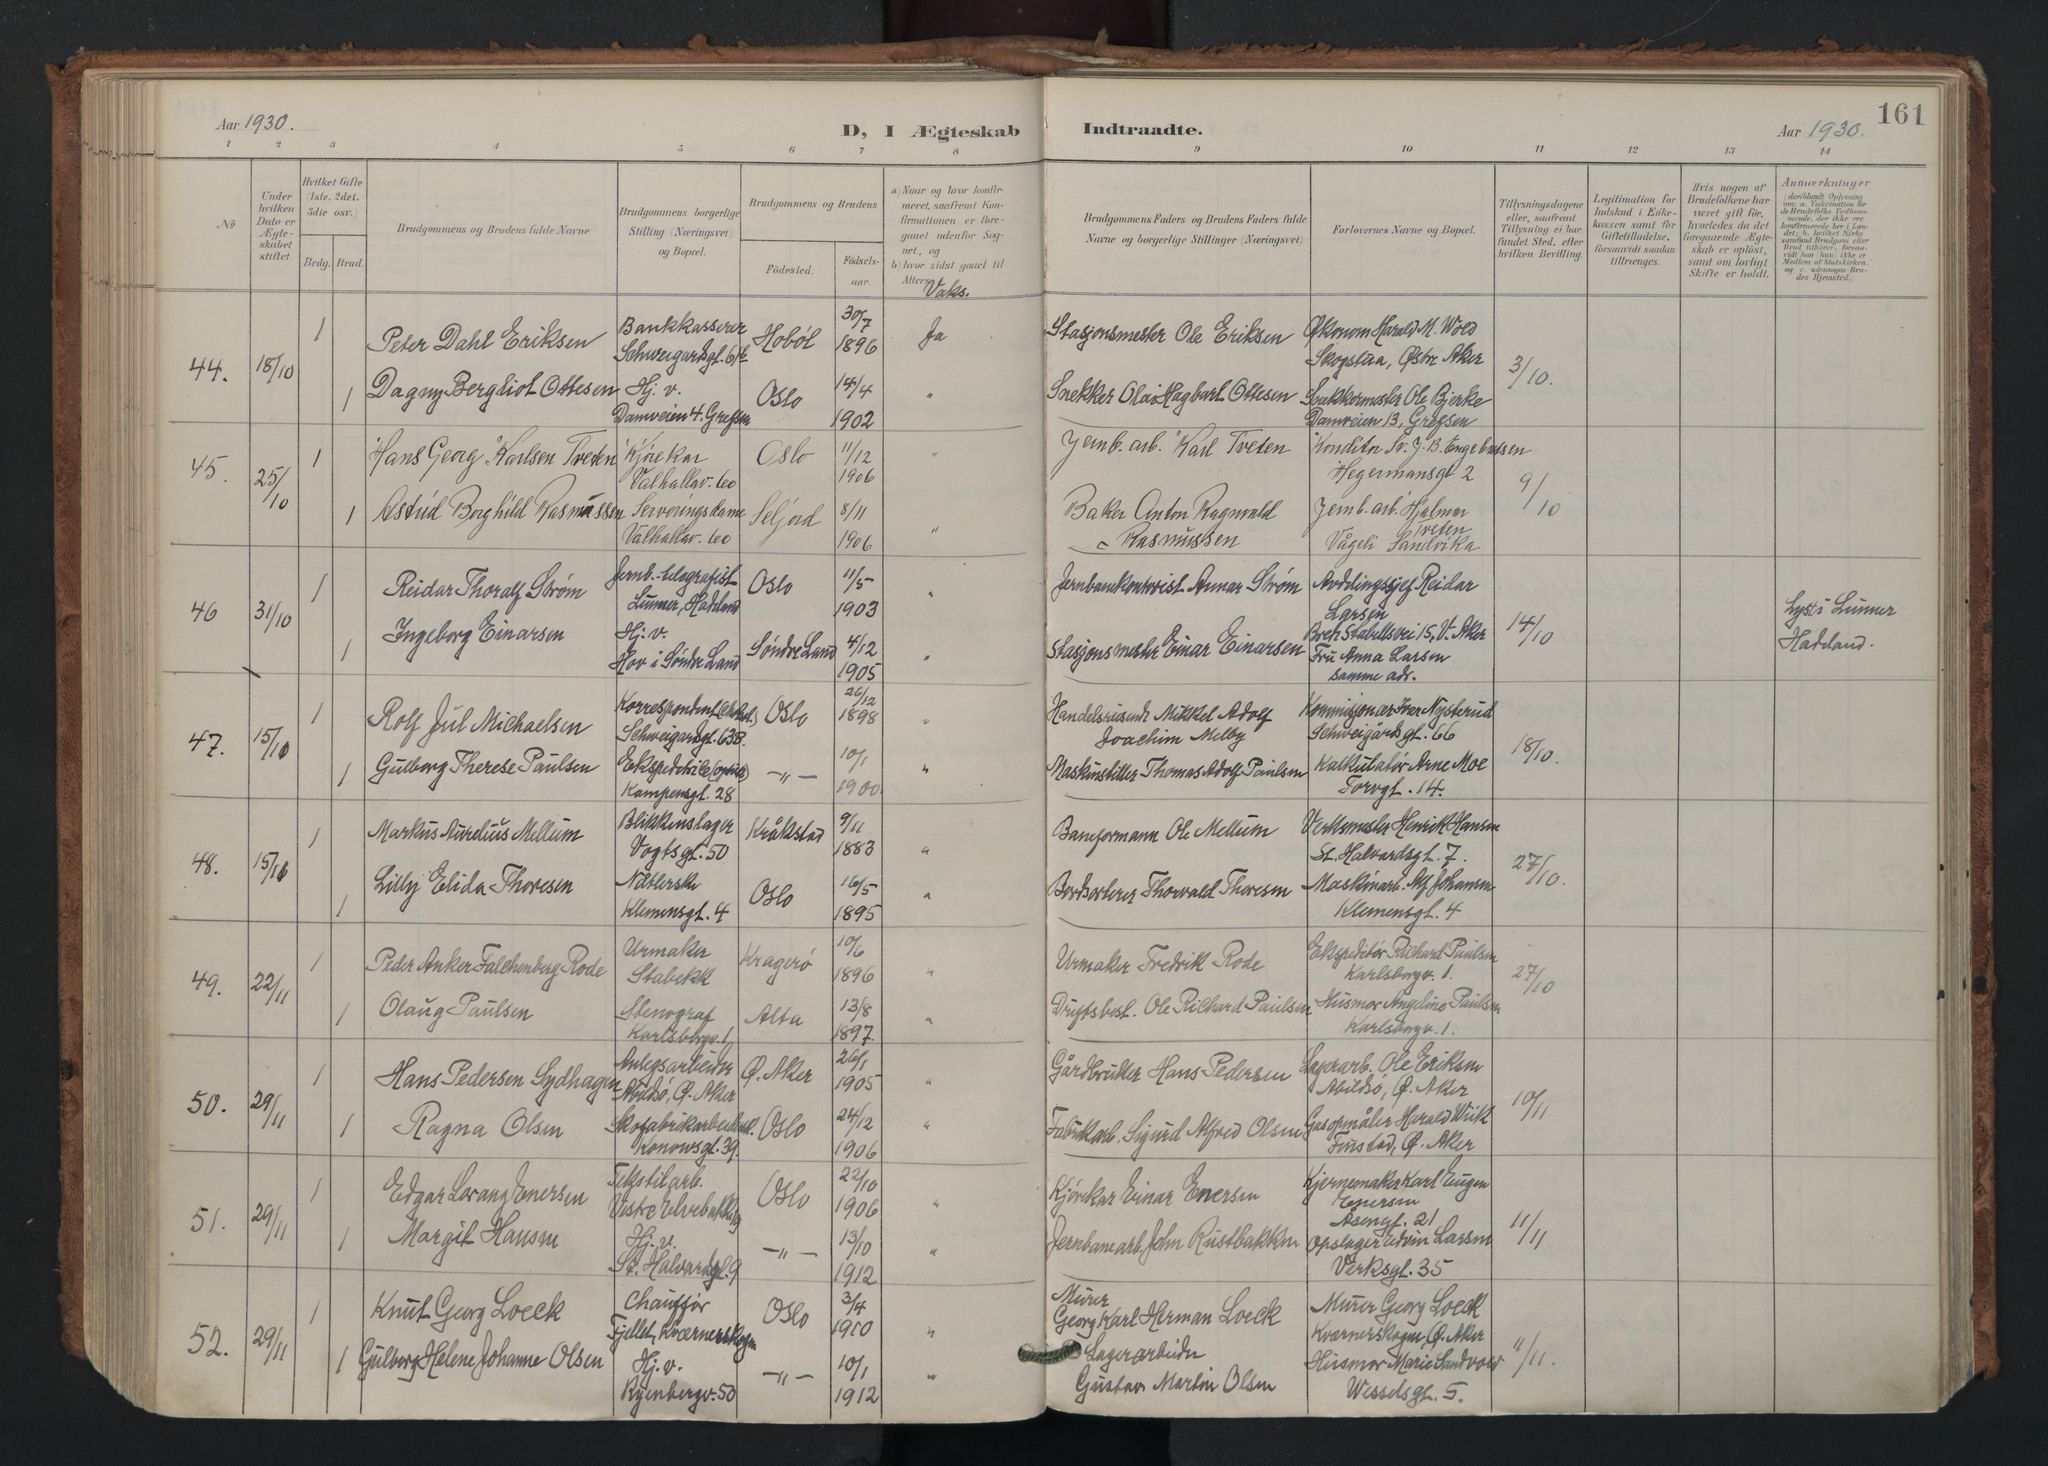 161
Aar 1930.
D, I Ægteskab Indtraadte.
Aar 1930.
1 2 3 4 5 6 7 8 9 10 11 12 13 14
No
Under hvilken Dato er Ægteskabet stiftet.
Hvilket Gifte (1ste, 2det, 3die osv.)
Brdg. Brud.
Brudgommens og Brudens fulde Navne
Brudgommens borgerlige Stilling (Næringsvei) og Bopæl.
Brudgommens og Brudens
Fødested. Fødselsaar.
a) Naar og hvor konfirmeret, saafremt Konfirmationen er foregaaet udenfor Sognet, og
b) hvor sidst gaaet til Alters.
Vaks.
Brudgommens Faders og Brudens Faders fulde Navne og borgerlige Stillinger (Næringsvei)
Forlovernes Navne og Bopæl.
Tillysningsdagene eller, saafremt Tillysning ei har fundet Sted, efter hvilken Bevilling.
Legitimation for Indskud i Enkekassen samt for Giftetilladelse, forsaavidt saadan tiltrænges.
Hvis nogen af Brudefolkene har været gift før, hvorledes da det foregaaende Ægteskab er opløst, samt om lovligt Skifte er holdt.
Anmærkninger
44. 18/10 1 Peter Dahl Eriksen Bankkasserer Hobøl 30/7 1896 Ja Stasjonsmester Ole Eriksen Økonom Harald M. Wold
Skogstua, Østre Aker 3/10.
1 Dagny Bergliot Ottesen Hj. v. Oslo 14/4 1902 " Snekker Olai Hagbart Ottesen Snekkermester Ole Bjerke
Damveien 4. Grefsen Damveien 13, Grefsen
45. 25/10 1 Hans Georg Karlsen Tveten Kjørekar Oslo 11/12 1906 " Jernb. arb. Karl Tveten Konditor Sv. J. B. Engebretsen
Valhallav. 60 Hegermansgt 2 9/10
1 Astrid Borghild Rasmussen Serveringsdame Seljord 8/11 1906 " Baker Anton Ragnvald Jernb. arb. Hjalmar
Valhallav. 60 Rasmussen Tveten
Vågeli Sandvika
46 31/10 1 Reidar Thoralf Strøm Jernb.-telegrafist Oslo 11/5 1903 " Jernbanekontorist Annar Strøm Avdelingssjef Reidar
Lunner, Hadeland Larsen
Bredo Stabellsvei 15, V. Aker 14/10 Lyst i Lunner
Hadeland.
1 Ingeborg Einarsen Hj. v. Søndre Land 4/12 1905 " Stasjonsmester Einar Einarsen Fru Anna Larsen
Hov i Søndre Land samme adr.
47. 15/10 1 Rolf Jul Michaelsen Korrespondent Oslo 26/12 1898 " Handelsreisende Mikkel Adolf Kommisjonær Iver Nysterud
Schweigårdsgt. 63B. Joachim Melby Schweigårdsgt. 66 18/10.
1 Gulborg Therese Paulsen Ekspeditrice –"– 10/1 1900 " Maskinstiller Thomas Adolf Paulsen Kalkulatør Arne Moe
Kampensgt. 28 Torvgt. 14.
48. 15/10 1 Markus Aurelius Mellum Blikkenslager Kråkstad 9/11 1883 " Baneformann Ole Mellum Verksmester Henrik Hansen
Vogtsgt. 50 St. Halvardsgt. 7. 27/10.
1 Lilly Elida Thoresen Nåtlerske Oslo 16/5 1895 " Bordsorterer Thorvald Thoresen Maskinarb. Alf Johansen
Klemensgt. 4 Klemensgt. 4
49. 22/11 1 Peder Anker Falchenberg Rode Urmaker Kragerø 10/6 1896 " Urmaker Fredrik Rode Ekspeditør Richard Paulsen
Stabekk Karlsborgv. 1. 27/10
1 Olaug Paulsen Stenograf Alta 13/8 1897. " Driftsbest. Ole Richard Paulsen Husmor Angeline Paulsen
Karlsborgv. 1 Karlsborgv. 1.
50. 29/11 1 Hans Pedersen Sydhagen Anlegsarbeider Ø. Aker 26/1 1905 " Gårdbruker Hans Pedersen Lagerarb. Ole Eriksen
Abildsø, Ø. Aker Abildsø, Ø. Aker 10/11
1 Ragna Olsen Skofabrikarbeiderske Oslo 24/12 1906 " Fabrikarb. Sigurd Alfred Olsen Gasopmåler Harald Wiik
Konowsgt. 39. Finstad, Ø. Aker
51. 29/11 1 Edgar Lorang Enersen Tekstilarb. Oslo 22/10 1906 " Kjørekar Einar Enersen Kjernemaker Karl Eugen
Vestre Elvebakke Enersen
Åsengt. 21 11/11
1 Margit Hansen Hj. v. –"– 13/10 1912 " Jernbanearb. John Rustbakken Opslager Edvin Larsen
St. Halvardsgt. 9 Verksgt. 35
52. 29/11 1 Knut Georg Loeck Chauffør Oslo 3/4 1910 " Murer
Georg Karl Herman Loeck Murer Georg Loeck
Fjellet, Kværnerskogen Kværnerskogen, Ø. Aker 11/11.
1 Gulborg Helene Johanne Olsen Hj. v. –"– 10/1 1912 " Lagerarbeider Husmor Marie Sandvold
Ryenbergv. 50 Gustav Martin Olsen Wesselsgt. 5.